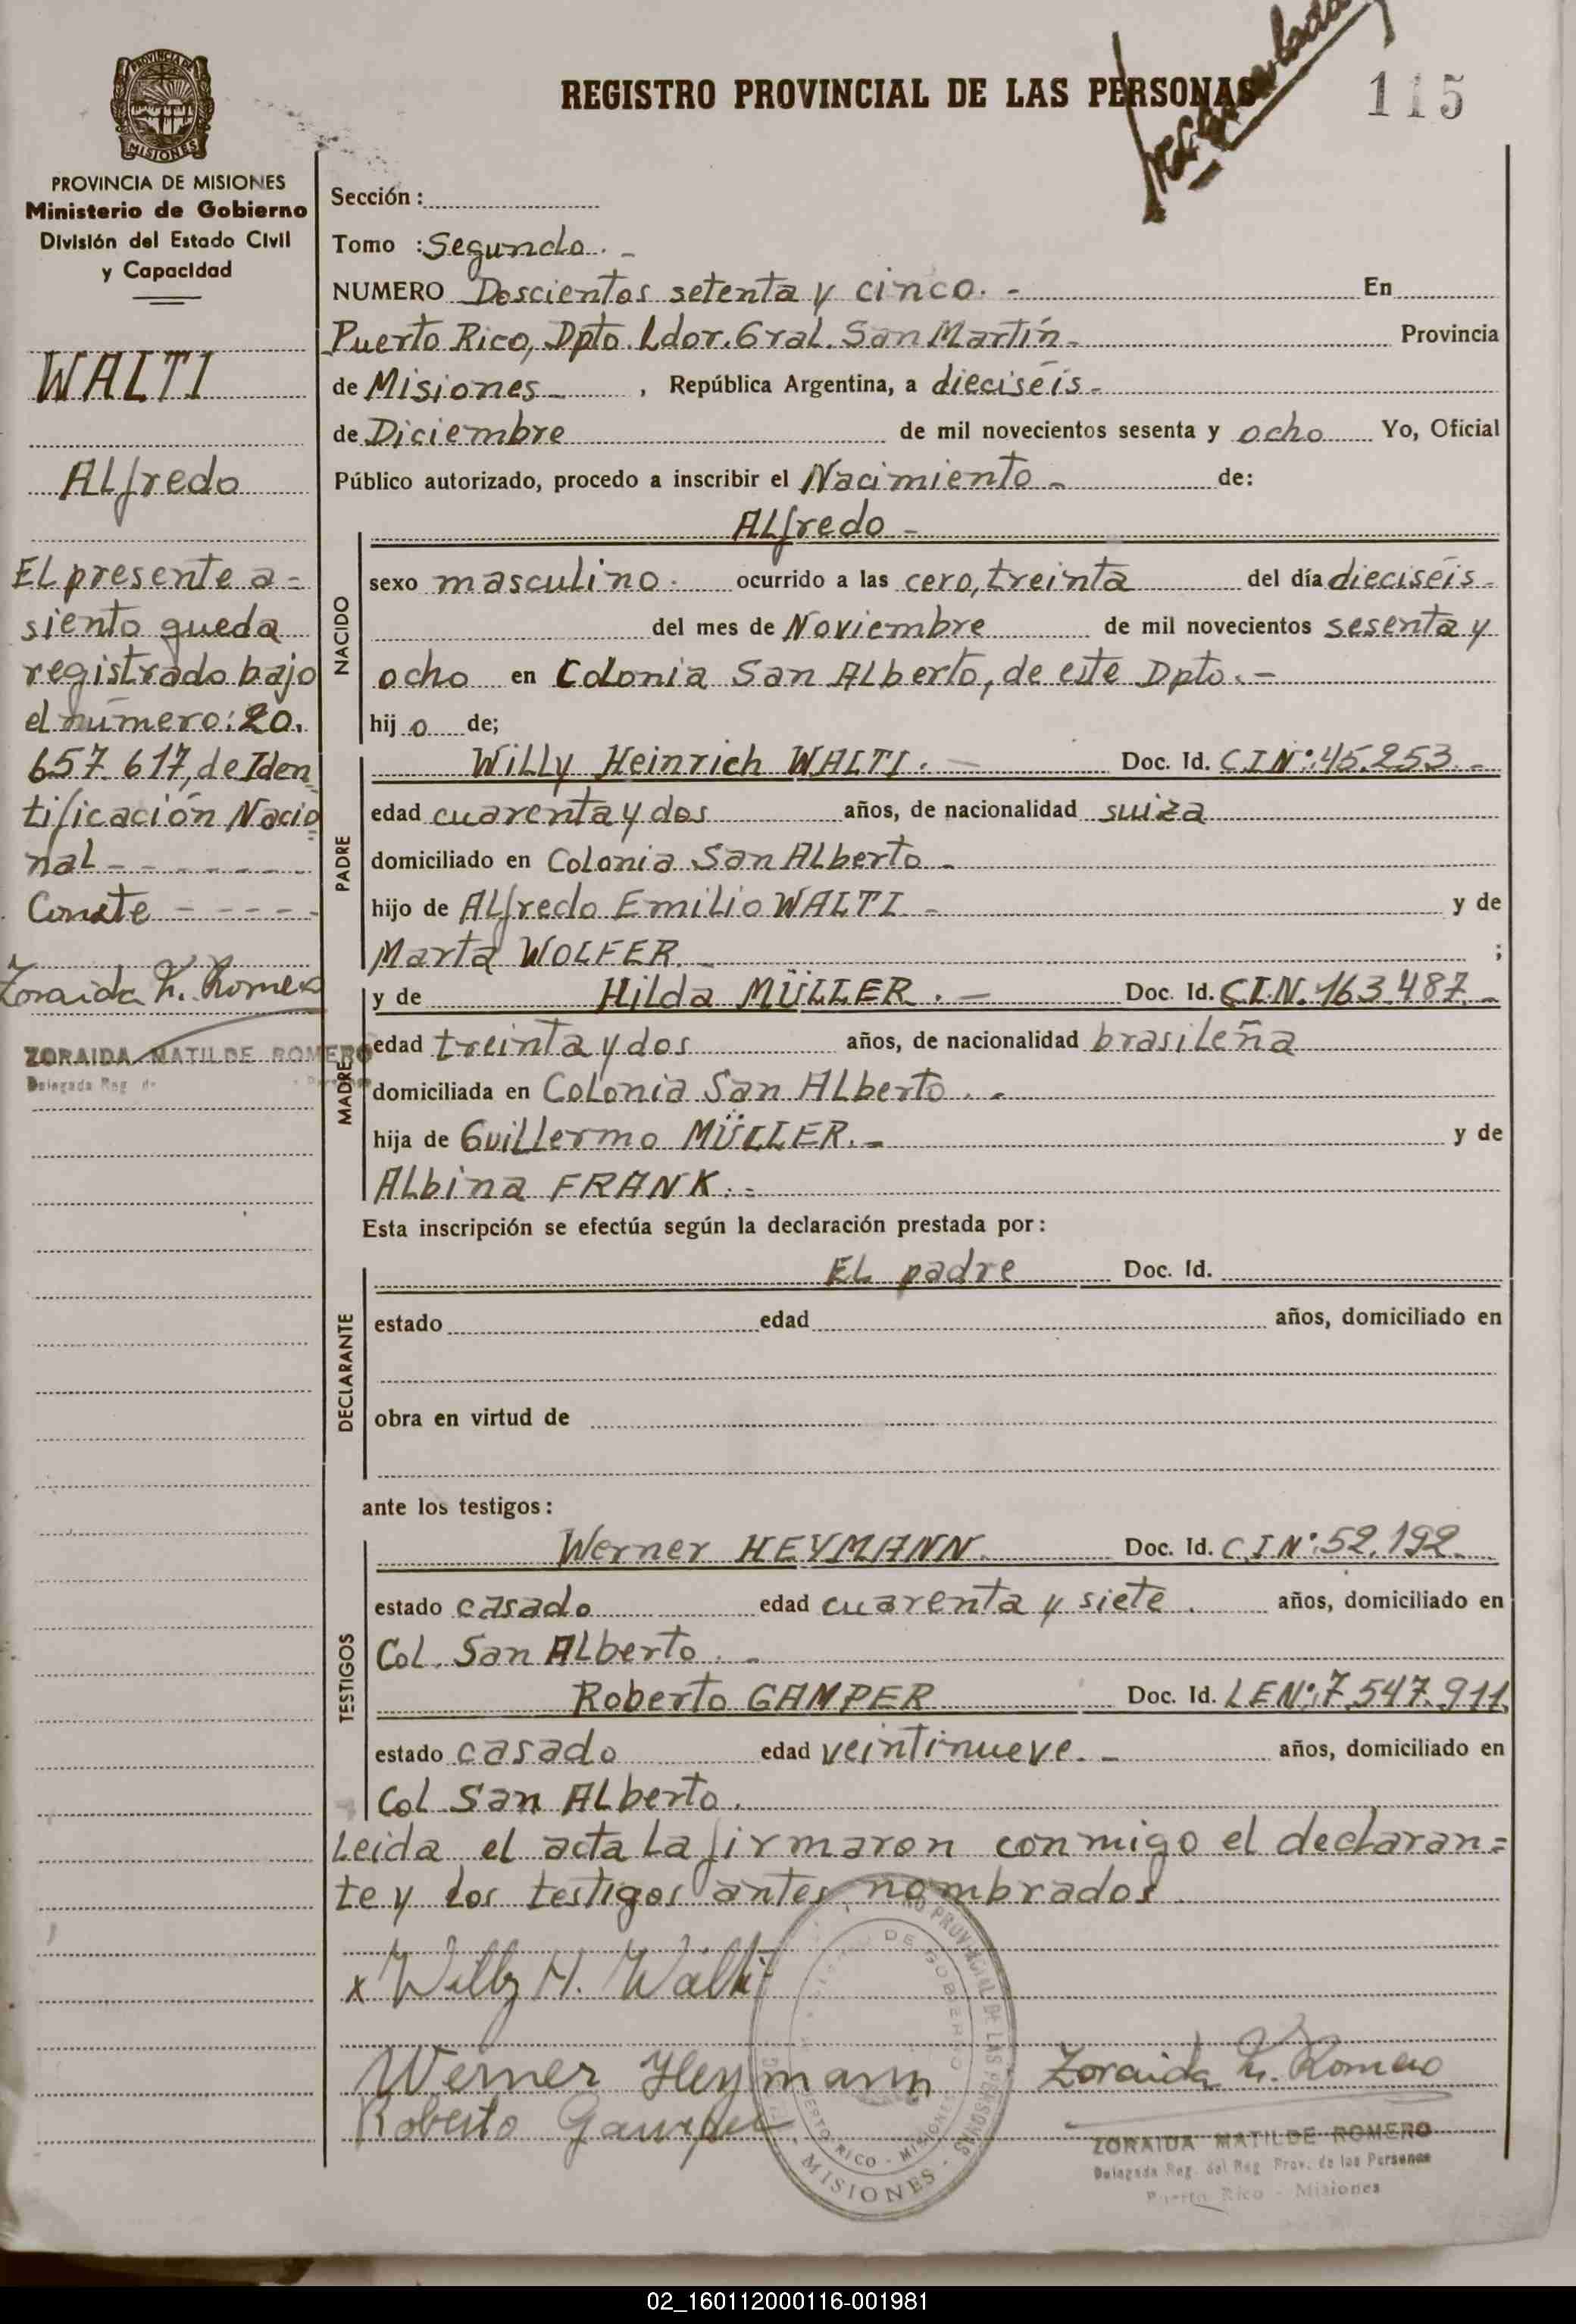 REGISTRO PROVINCIAL DE LAS PERSONAS
115
PROVINCIA DE
MISIONES
PROVINCIA DE MISIONES
Ministerio de Gobierno
División del Estado Civil
y Capacidad
WALTI
Alfredo
El presente a=
siento queda
registrado bajo
el número: 20.
657.617, de Iden
tificación Nacio
nal - - - - - - -
Conste - - - - -
Zoraida M. Romero
ZORAIDA MATILDE ROMERO
Delegada Reg. de
Sección:
Tomo : Segundo. -
NUMERO Doscientos setenta y cinco. - En
Puerto Rico, Dpto. Ldor. Gral. San Martín - Provincia
de Misiones - , República Argentina, a dieciséis -
de Diciembre de mil novecientos sesenta y ocho Yo, Oficial
Público autorizado, procedo a inscribir el Nacimiento - de:
NACIDO
Alfredo -
sexo masculino. ocurrido a las cero, treinta del día dieciséis -
del mes de Noviembre de mil novecientos sesenta y
ocho en Colonia San Alberto, de este Dpto. -
hij o de;
PADRE
Willy Heinrich WALTI. - Doc. Id. C.I.N°: 45.253. -
edad cuarenta y dos años, de nacionalidad suiza
domiciliado en Colonia San Alberto -
hijo de Alfredo Emilio WALTI - y de
Marta WOLFER. - ;
MADRE
y de Hilda MÜLLER. - Doc. Id. C.I.N. 163.487. -
edad treinta y dos años, de nacionalidad brasileña
domiciliada en Colonia San Alberto. -
hija de Guillermo MÜLLER. - y de
Albina FRANK. =
Esta inscripción se efectúa según la declaración prestada por:
DECLARANTE
El padre Doc. Id.
estado edad años, domiciliado en
obra en virtud de
ante los testigos:
TESTIGOS
Werner HEYMANN. Doc. Id. C.I.N°: 52.192.
estado casado edad cuarenta y siete. años, domiciliado en
Col. San Alberto. -
Roberto GAMPER Doc. Id. L.E.N°: 7.547.911.
estado casado edad veintinueve. - años, domiciliado en
Col San Alberto.
Leida el acta la firmaron conmigo el declaran=
te y los testigos antes nombrados.
x Willy H. Wälti
Werner Heymann
Zoraida M. Romero
Roberto Gamper
PROVINCIAL DE LAS PERSONAS
DE GOBIERNO
PUERTO RICO - MISIONES
MISIONES
ZORAIDA MATILDE ROMERO
Delegada Reg. del Reg. Prov. de las Personas
Puerto Rico - Misiones
02_160112000116-001981